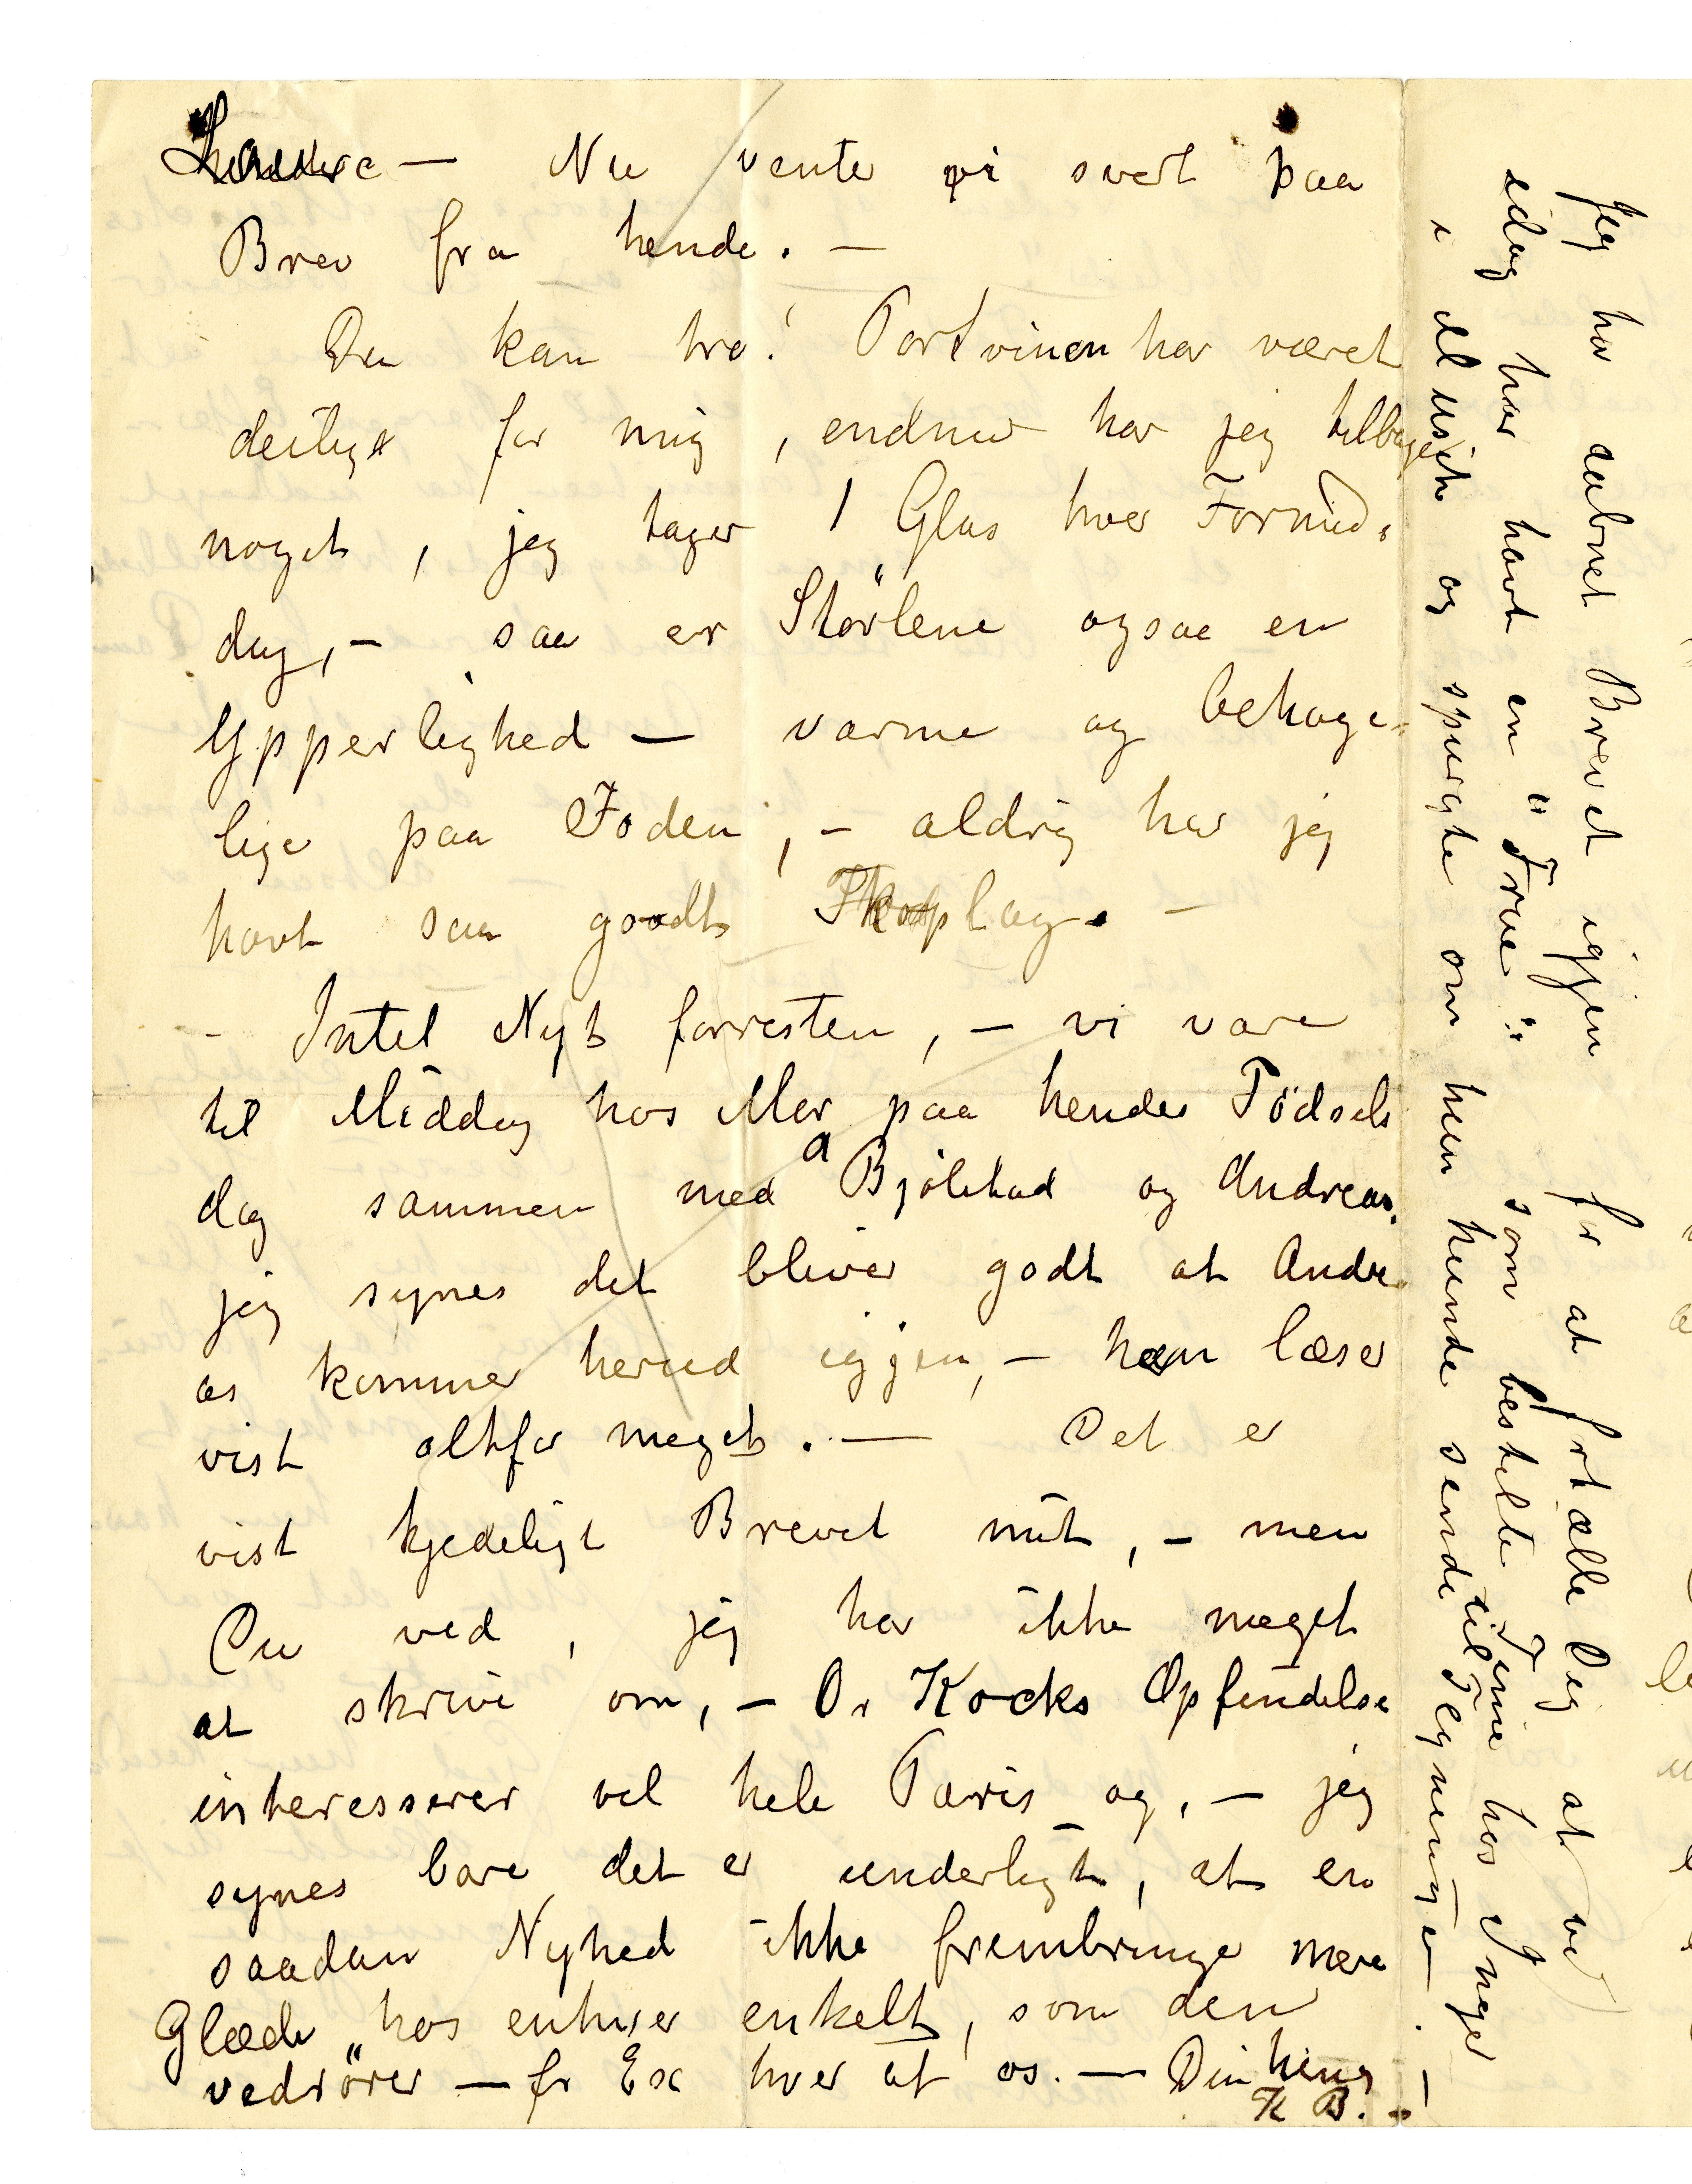 Laura — Nu vente vi svert paa
Brev fra hende. —
Du kan tro! Portvinen har været
deiligt for mig, endnu har jeg tilbage
noget, jeg tager 1 Glas hver Formid-
dag, — saa er Störlene ogsaa en
Ypperlighed — varme og behage-
lige paa Foden, — aldrig har jeg
havt saa godt Foplag. —
- Intet Nyt forresten, — vi vare
til Middag hos Mor paa hendes Födsels
dag sammen med Bjölstad og Andreas.
jeg synes det bliver godt at Andre-
as kommer herud igjen, — han læser
vist altfor meget. — Det er
vist kjedeligt Brevet mit, — men
Du ved, jeg har ikke meget
at skrive om, — Dr Kocks Opfindelse
interesserer vel hele Paris og, — jeg
synes bare det er underligt, at en
saadan Nyhed ikke frembringe mere
Glæde hos enhver enkelt, som den
vedrörer — fr Ex hver af os. — Din heng
K B.
Jeg har aabnet Brevet igjen for at fortælle Dig at vi
idag har havt en "Frue" som bestilte Time hos Inger
i al Musik og spurgte om hun kunde sende til Tegninger. —